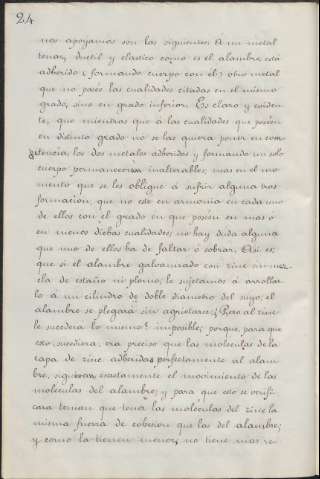 24
nos apoyamos son las siguientes: A un metal
tenaz, ductil y elastico como es el alambre está
adherido (formando cuerpo con él) otro metal
que no posee las cualidades citadas en el mismo
grado, sino en grado inferior. Es claro y eviden-
te, que mientras que á las cualidades que poseen
en distinto grado no se las quiera poner en com-
petencia, los dos metales adheridos y formando un solo
cuerpo permanecerán inalterables; mas en el mo-
mento que se les obligue á sufrir alguna tras
formacion, que no esté en armonia en cada uno
de ellos con el grado en que poseen en mas ó
en menos dichas cualidades; no hay duda alguna
que uno de ellos ha de faltar ó sobrar. Asi es;
que si el alambre galvanizado con zinc sin mez-
cla de estaño ni plomo, le sujetamos á arrollar
lo á un cilindro de doble diametro del suyo, el
alambre se plegará sin agrietarse; ¿Pero al zinc
le sucederá lo mismo? imposible; porque, para que
esto sucediera, era preciso que las moleculas de la
capa de zinc adheridas perfectamente al alam
bre, siguieran exactamente el movimiento de las
moleculas del alambre; y para que esto se verifi
cara tenian que tener las moléculas del zinc la
misma fuerza de cohesion que las del alambre;
y como la tienen menor, no tiene mas re-